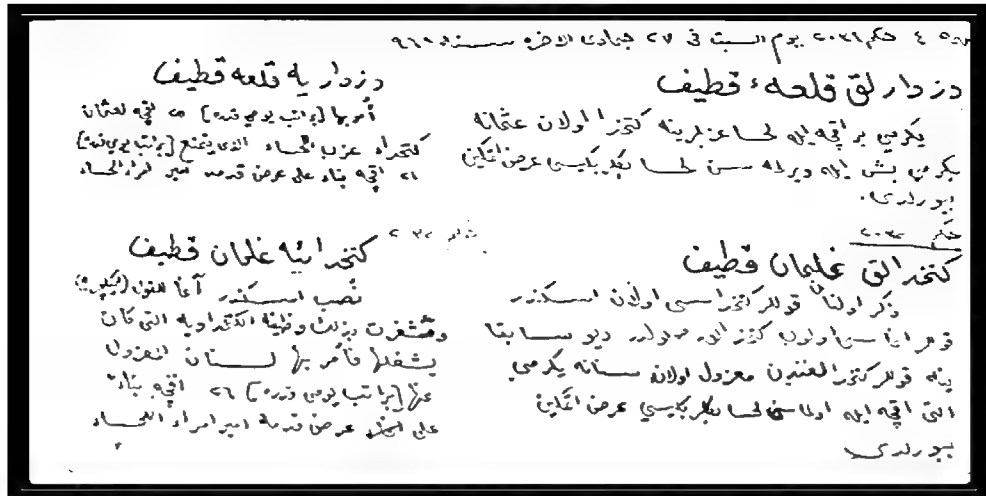 حكم ٢٠٣١ يوم السبت فى ٢٧ جمادى الاخره سنة
دزدارلق قلعهٔ قطيف
يكرمى بر اقچه ايله لحسا عزبلرينه كتخدا اولان عثمانه
يكرمى بش ايله ويرلمه سن لحسا بكلربكيسى عرض اتمكين
بيورلدى.
حكم ٢٠٣٢
كتخدالق غلمان قطيف
ذكر اولنان قوللر كتخداسى اولان اسكندر
سابقا
ينه قوللر كتخدالغندن معزول اولان سنانه يكرمى
التى اقچه ايله لحسا بكلربكيسى عرض اتمكين
بيورلدى
دزداريه قلعه قطيف
أمر بها [براتب يومي قدره] ٢٥ اقچه لعثمان
كتخداء عزب الحساء الذى يتمتع [براتب يومي قدره]
٢١ اقچه بناء على عرض قدمه امير امراء الحساء
حكم ٢٠٣٢
كتخدائية غلمان قطيف
نصب اسكندر آغا
وشغرت بذلك وظيفة الكتخداويه التي كان
يشغلها فأمر بها لسنان المعزول
عنها [براتب يومي قدره] ٢٦ اقچه بناء
على عرض قدمه امير امراء الحساء